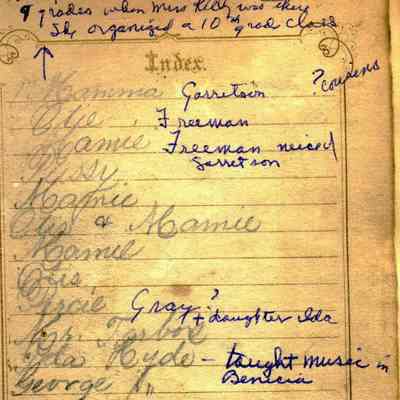 9 grades when Miss Kelly was they
She organized a 10th grad class
Index.
Mamma Garretson ? cousins
Otie Freeman
Mamie Freeman neice/
Garretson
Pussy
Mamie
Otis & Mamie
Mamie
Otis
Gracie Gray?
+ daughter Ida
Mr. Tarbox
Ida Hyde - taught music in
Benicia
George "